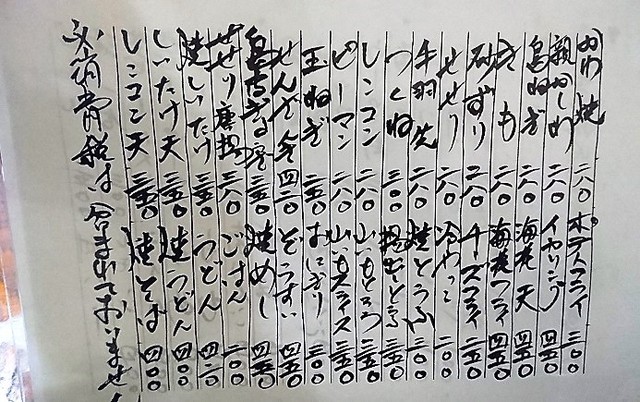 かわ焼 二八〇 ポテトフライ 三〇〇
親かしわ 二八〇 イカリング 四五〇
鳥ねぎ 二八〇 海老天 四五〇
きも 二八〇 海老フライ 四五〇
砂ずり 二八〇 チーズフライ 三五〇
せせり 二八〇 冷やっこ 二〇〇
手羽先 二八〇 焼とうふ 三五〇
つくね 三〇〇 揚出とうふ 三五〇
レンコン 二八〇 山いもとろろ 三五〇
ピーマン 二八〇 山いもスライス 三五〇
玉ねぎ 二五〇 おにぎり 三〇〇
せんざんき 四二〇 ぞうすい 四五〇
三五〇 焼めし 四五〇
せせり唐揚 三八〇 ごはん 二〇〇
焼しいたけ 三五〇 うどん 四二〇
しいたけ天 三五〇 焼うどん 四〇〇
レンコン天 三五〇 焼そば 四〇〇
消費税は含まれておりません